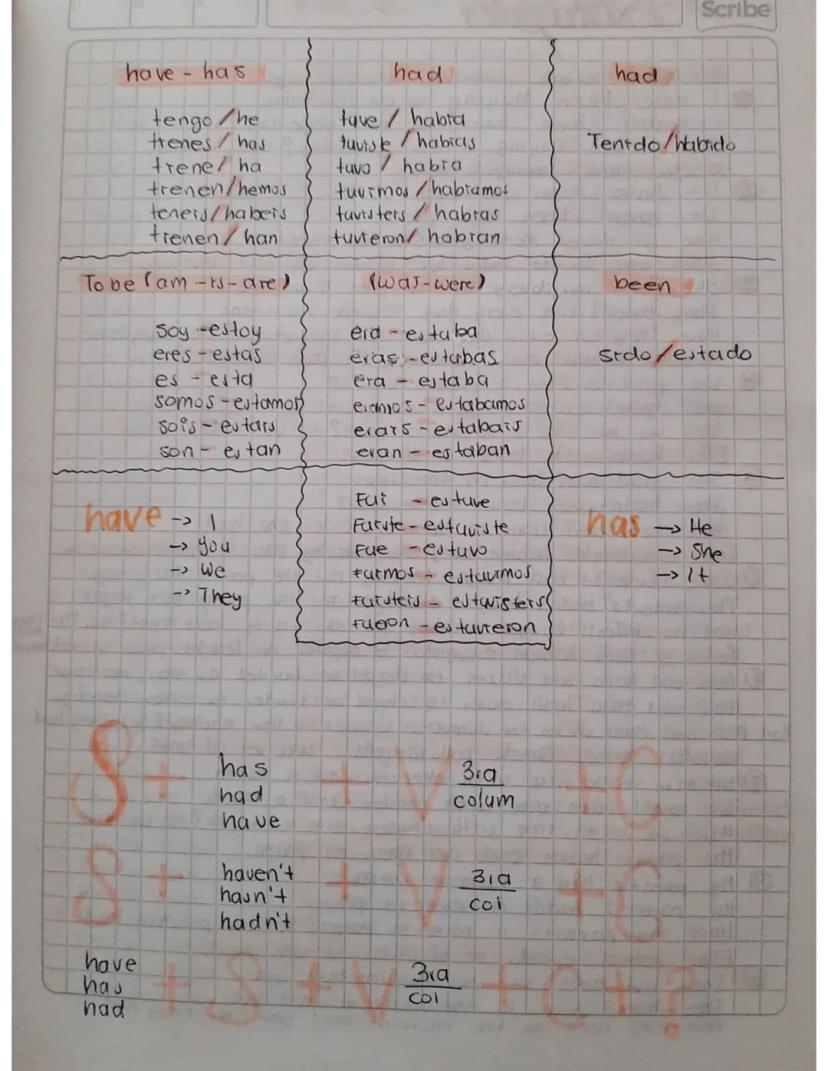 Scribe
have - has
tengo / he
tienes / has
tiene / ha
tienen / hemos
teneis / habeis
tienen / han
had
tuve / habia
tuviste / habias
tuvo / habia
tuvimos / habiamos
tuvisteis / habias
tuvieron / habian
had
Tenido / habido
To be (am - is - are)
soy - estoy
eres - estas
es - esta
somos - estamos
sois - estais
son - estan
(was - were)
era - estaba
eras - estabas
era - estaba
eramos - estabamos
erais - estabais
eran - estaban
been
sido / estado
have → I
→ you
→ We
→ They
Fui - estuve
Fuiste - estuviste
Fue - estuvo
Fuimos - estuvimos
Fuisteis - estuvisteis
Fueron - estuvieron
has → He
→ She
→ It
S + has had have + V 3ra colum + C
S + haven't hasn't hadn't + V 3ra col + C
have has had + S + V 3ra col + C + ?